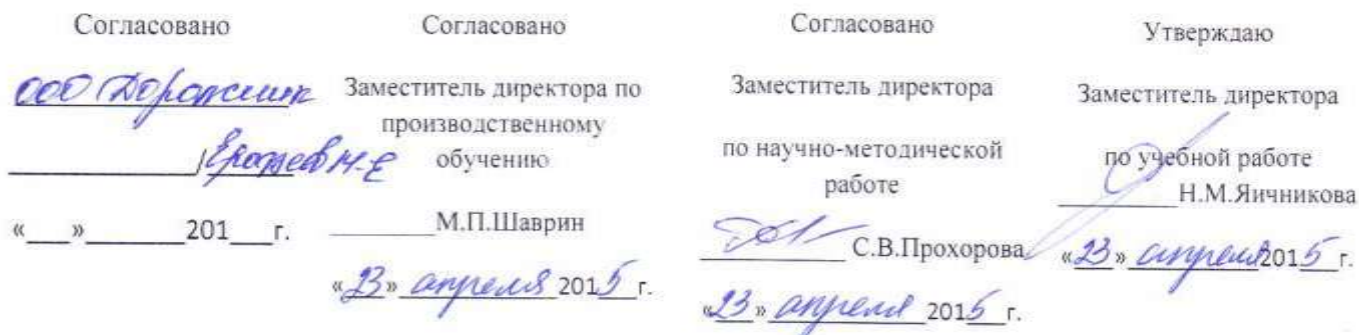 Согласовано
ООО Дорожник
/Ерофеев Н.Е
«___»_______201___г.
Согласовано
Заместитель директора по
производственному
обучению
________М.П.Шаврин
«23» апреля 2015 г.
Согласовано
Заместитель директора
по научно-методической
работе
__________ С.В.Прохорова
«23» апреля 2015 г.
Утверждаю
Заместитель директора
по учебной работе
_________Н.М.Яичникова
«23» апреля 2015 г.